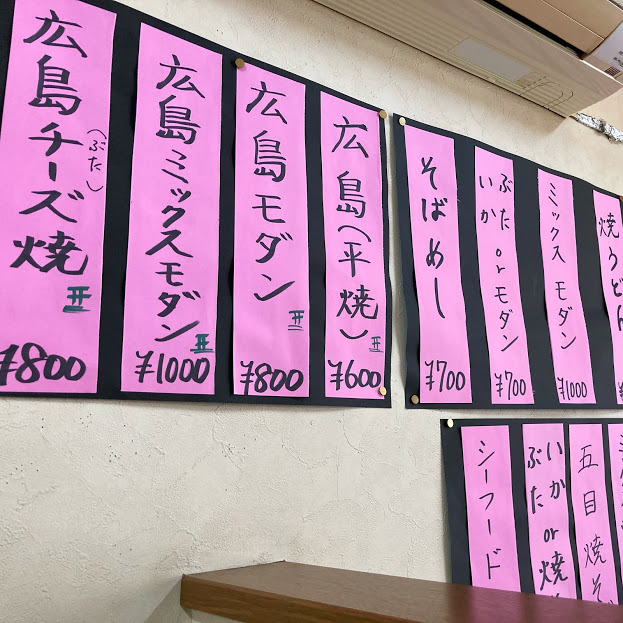 広島チーズ焼
（ぶた）
¥800
広島ミックスモダン
¥1000
広島モダン
¥800
広島（平焼）
¥600
そばめし
¥700
ぶた
いか
orモダン
¥700
ミックスモダン
¥1000
焼うどん
シーフード
いか
ぶた
or焼
五目焼そ